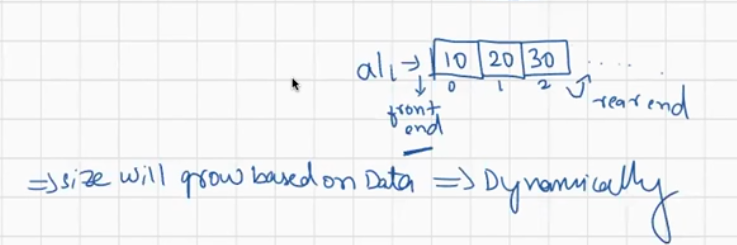 al1 → 10 20 30 .....
0 1 2
front end
rear end
⇒ size will grow based on Data ⇒ Dynamically